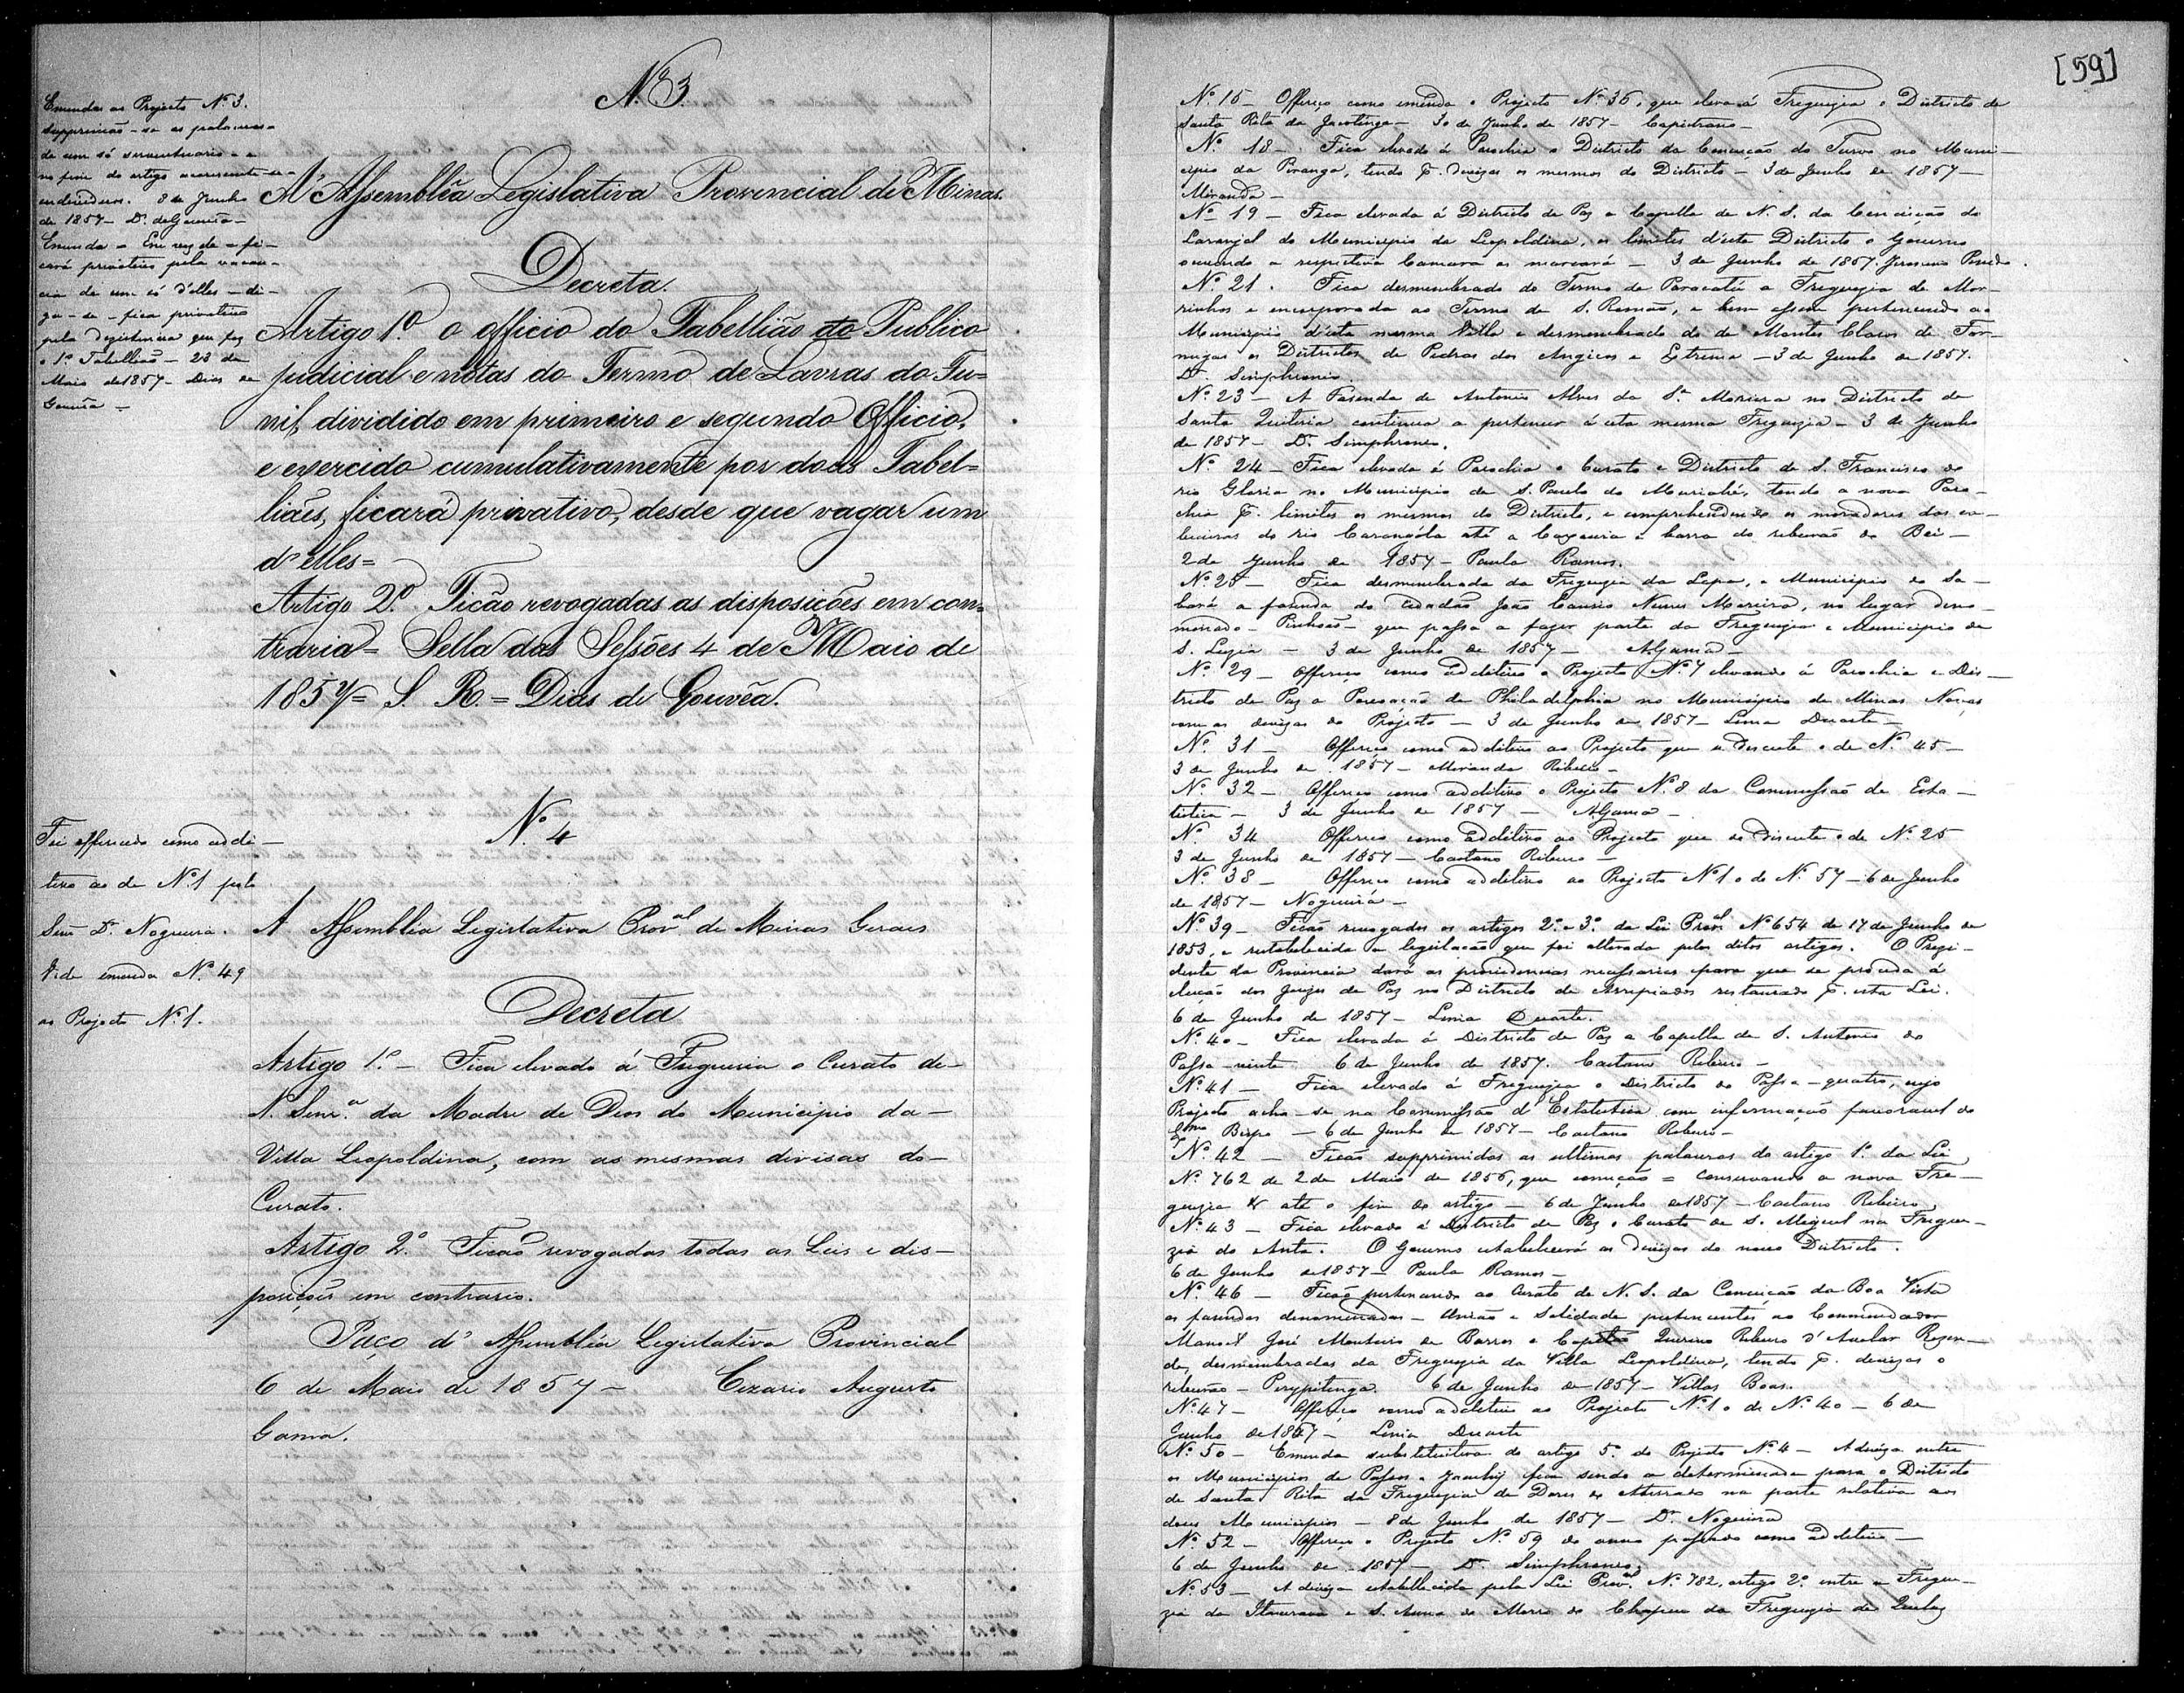 N.º 3.
Emendas ao Projecto Nº 3.
Supprimão-se as palavras =
de um só serventuario = e
no fim do artigo accrescente-se =
endividuos. 8 de Junho
de 1857 - Dr. de Gouvêa -
Emenda = Em vez de = fi-
cará privativo pela vacan-
cia de um só d'elles - di-
ga-se - fica privativo
pela desistencia que fez
o 1º Tabellião - 23 de
Maio de 1857 - Dias de
Gouvêa -
A Assembléa Legislativa Provincial de Minas.
Decreta
Artigo 1º. O officio do Tabellião do Publico
judicial e notas do Termo de Lavras do Fu=
nil, dividido em primeiro e segundo Officio,
e exercido cumulativamente por dous Tabel=
liães, ficará privativo, desde que vagar um
d'elles=
Artigo 2º. Ficão revogadas as disposições em con=
traria= Salla das Sessões 4 de Maio de
1857= S. R. = Dias de Gouvêa.
N.º 4
Foi offerecido como addi-
tivo ao de Nº 1 pelo
Senr. Dr. Nogueira.
Vide emenda Nº 49
ao Projecto Nº 1.
A Assembléa Legislativa Prov.al de Minas Geraes
Decreta
Artigo 1.º - Fica elevado á Freguesia o Curato de-
N. Senr.ª da Madre de Deos do Municipio da-
Villa Leopoldina, com as mesmas divisas do-
Curato.
Artigo 2.º Ficão revogadas todas as Leis e dis-
posições em contrario.
Paço d'Assembléa Legislativa Provincial
6 de Maio de 1857 - Cezario Augusto
Gama.
[59]
Nº 15 - Offereço como emenda o Projecto Nº 36, que eleva á Freguezia o Districto de
Santa Rita da Jacutinga - 3 de Junho de 1857 - Capistrano -
Nº 18 - Fica elevado á Parochia o Districto da Conceição do Turvo no Muni-
cipio da Piranga, tendo p. devizas as mesmas do Districto - 3 de Junho de 1857 -
Miranda -
Nº 19 - Fica elevada á Districto de Paz a Capella de N. S. da Conceição do
Laranjal do Municipio da Leopoldina, os limites d'este Districto o Governo
ouvindo a respectiva Camara os marcará - 3 de Junho de 1857.
Nº 21. Fica desmembrado do Termo de Paracatú a Freguezia de Mor-
rinhos e encorporada ao Termo de S. Romão, e bem assim pertencendo ao
Municipio d'esta mesma Villa e desmembrado do de Montes Claros de For-
migas os Districtos de Pedras dos Angicos e Extrema - 3 de Junho de 1857.
Dr. Simphronio
Nº 23 - A Fasenda de Antonio Alves da S.ª Moreira no Districto de
Santa Quiteria continua a pertencer á esta mesma Freguezia - 3 de Junho
de 1857 - Dr. Simphronio.
Nº 24 - Fica elevado á Parochia o Curato e Districto de S. Francisco do
rio Gloria no Municipio de S. Paulo do Muriahé, tendo a nova Paro-
chia p. limites os mesmos do Districto, e comprehendendo os moradores das ca-
beceiras do rio Carangóla até a Cachoeira e barra do ribeirão do Boi -
2 de Junho de 1857 - Paula Ramos.
Nº 25 - Fica desmembrada da Freguezia da Lapa, e Municipio do Sa-
bará a fazenda do Cidadão João Nunes Moreira, no lugar deno-
minado - Pinhões - que passa a fazer parte da Freguezia e Municipio de
S. Luzia - 3 de Junho de 1857 - AGama -
Nº 29 - Offereço como additivo o Projecto Nº 7 elevando á Parochia e Dis-
tricto de Paz a Povoação de Philadelphia no Municipio de Minas Novas
com as devizas do Projecto - 3 de Junho de 1857 - Lima Duarte -
Nº 31 - Offereço como additivo ao Projecto que se discute o de Nº 45 -
3 de Junho de 1857 - Miranda Ribeiro -
Nº 32 - Offereço como additivo o Projecto Nº 8 da Commissão de Esta-
tistica - 3 de Junho de 1857 - AGama -
Nº 34 Offereço como additivo ao Projecto que se discute o de Nº 25
3 de Junho de 1857 - Caetano Ribeiro -
Nº 38 - Offereço como additivo ao Projecto Nº 1 o de Nº 57 - 6 de Junho
de 1857 - Nogueira -
Nº 39 - Ficão revogados os artigos 2º e 3º da Lei Prov.al Nº 654 de 17 de Junho de
1853, e restabelecida a legislação que foi alterada pelos ditos artigos. O Prezi-
dente da Provincia dará as providencias necessarias para que se proceda á
eleição dos Juizes de Paz no Districto de Arripiados restaurado p. esta Lei.
6 de Junho de 1857 - Lima Duarte.
Nº 40 - Fica elevada á Districto de Paz a Capella de S. Antonio do
Passa-vinte 6 de Junho de 1857. Caetano Ribeiro -
Nº 41 - Fica elevado á Freguezia o Districto do Passa-quatro, cujo
Projecto acha-se na Commissão d'Estatistica com informação favoravel do
Exmo Bispo - 6 de Junho de 1857 - Caetano Ribeiro -
Nº 42 - Ficão supprimidas as ultimas palavras do artigo 1º da Lei
Nº 762 de 2 de Maio de 1856, que começão = conservando a nova Fre-
guezia & até o fim do artigo - 6 de Junho de 1857 - Caetano Ribeiro
Nº 43 - Fica elevado á Districto de Paz o Curato de S. Miguel na Fregue-
zia do Anta. O Governo estabelecerá as devizas do novo Districto.
6 de Junho de 1857 - Paula Ramos -
Nº 46 - Ficão pertencendo ao Curato de N. S. da Conceição da Boa Vista
as fazendas denominadas - União e Soledade pertencentes ao Commendador
Manoel José Monteiro de Barros e Capitão Quirino Ribeiro d'Avelar Rezen-
de, desmembradas da Freguezia da Villa Leopoldina, tendo p. devizas o
ribeirão - Pirapitinga. 6 de Junho de 1857 - Villas Boas.
Nº 47 - Offereço como additivo ao Projecto Nº 1 o de Nº 40 - 6 de
Junho de 1857 - Lima Duarte
Nº 50 - Emenda substitutiva do artigo 5º do Projecto Nº 4 - A deviza entre
os Municipios de Passos e Jacuhy fica sendo a determinada para o Districto
de Santa Rita da Freguezia de Dores do Atterrado na parte relativa aos
dous Municipios - 8 de Junho de 1857 - Dr. Nogueira
Nº 52 - Offereço o Projecto Nº 59 do anno passado como additivo -
6 de Junho de 1857 - Dr. Simphronio
Nº 53 - A deviza estabellecida pela Lei Prov.al Nº 782, artigo 2º entre a Fregue-
zia da Itaverava e S. Anna do Morro do Chapeu da Freguezia de Queluz